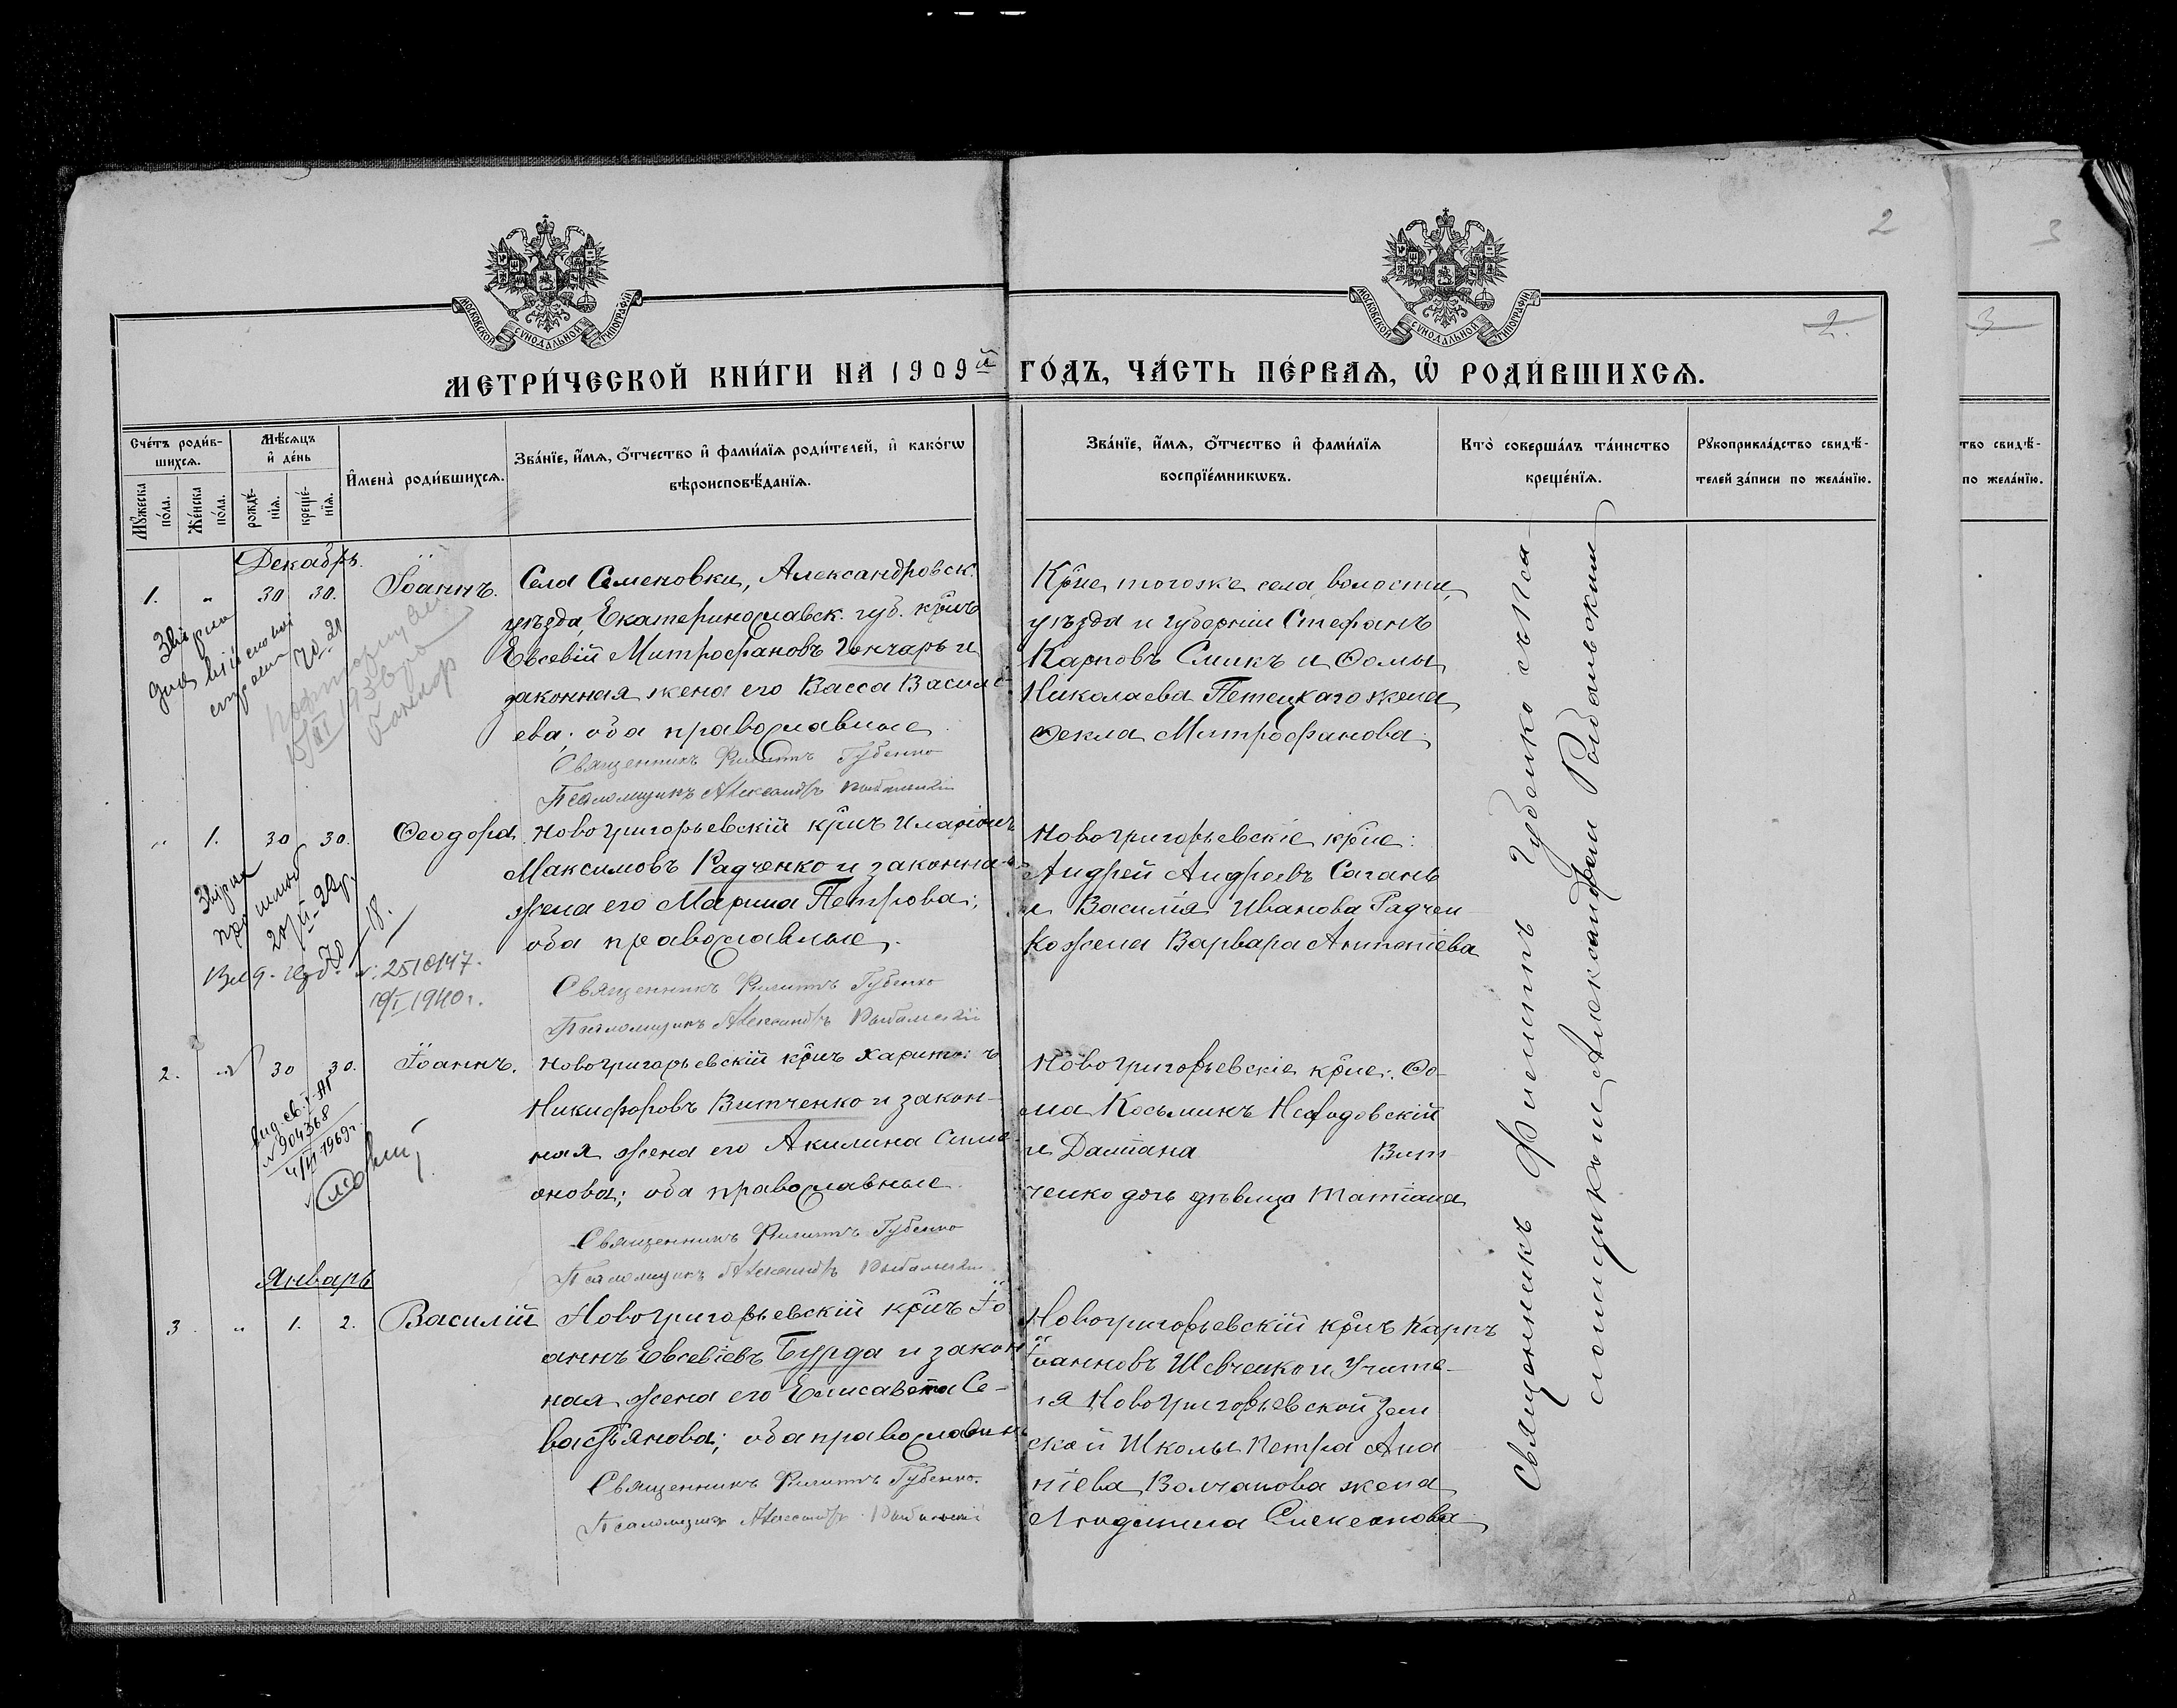 2
3
МОСКОВСКОЙ СѴНОДАЛЬНОЙ ТИПОГРАФІИ
МОСКОВСКОЙ СѴНОДАЛЬНОЙ ТИПОГРАФІИ
2.
3
МЕТРИ́ЧЕСКОЙ КНИ́ГИ НА 1909й ГО́ДЪ, ЧА́СТЬ ПЕ́РВАѦ, Ѡ҆ РОДИ́ВШИХСѦ.
Сче́тъ роди́в-
шихсѧ.
Мꙋ́жеска по́ла.
Же́нска по́ла.
Мѣ́сѧцъ и҆ де́нь
рожде́-нїѧ.
креще́-нїѧ.
И҆мена̀ роди́вшихсѧ.
Зва́нїе, и҆́мѧ, ѻ҆́тчество и҆ фами́лїѧ роди́телей, и҆ како́гѡ
вѣроисповѣ́данїѧ.
Зва́нїе, и҆́мѧ, ѻ҆́тчество и҆ фами́лїѧ
воспрїе́мникѡвъ.
Кто̀ соверша́лъ та́инство
креще́нїѧ.
Рꙋкоприкла́дство свидѣ́-
телей за́писи по жела́нїю.
тво свидѣ́-
по жела́нїю.
Декабрь.
1. „ 30 30. Іоаннъ.
Села Семеновки, Александровск.
уѣзда, Екатеринославск. губ. крнъ
Евсевій Митрофановъ Гончаръ и
законная жена его Васса Василі-
ева; оба православные
Священникъ Филиппъ Губенко
Псаломщикъ Александръ Рыбальскій
Крне, тогоже села, волости,
уѣзда и губерніи Стефанъ
Карповъ Смикъ и Ѳомы
Николаева Петецкаго жена
Ѳекла Митрофанова.
Звірка
для військовой
справи
15/III 193
„ 1. 30 30. Ѳеодора.
Новогригорьевскій крнъ Иларіонъ
Максимовъ Радченко и законная
жена его Марина Петрова;
оба православные.
Священникъ Филиппъ Губенко
Псаломщикъ Александръ Рыбальскій
Новогригорьевскіе крне:
Андрей Андреевъ Саганъ
и Василія Иванова Радчен-
ко жена Варвара Антоніева
Звірка
2510147.
10/I 1940г.
2. „ 30 30. Іоаннъ.
Новогригорьевскій крнъ Харитонъ
Никифоровъ Витченко и закон-
ная жена его Акилина Симе-
онова; оба православные
Священникъ Филиппъ Губенко
Псаломщикъ Александръ Рыбальскій
Новогригорьевскіе крне: Ѳо-
ма Косьминъ Нефодовскій
и Даміана Вит-
ченко дочь дѣвица Татіана
№ 904368
4/IV-1969г.
Январь
3. „ 1. 2. Василій
Новогригорьевскій крнъ Іо-
аннъ Евсевіевъ Бурда и закон-
ная жена его Елисавета Се-
вастьянова; оба православны
Священникъ Филиппъ Губенко.
Псаломщикъ Александръ Рыбальскій
Новогригорьевскій крнъ Карпъ
Іоанновъ Шевченко и Учите-
ля Новогригорьевской Зем
ской Школы Петра Ана
ніева Волчанова жена
Людмила
Священникъ Филиппъ Губенко съ Пса-
ломщикомъ Александромъ Рыбальскимъ